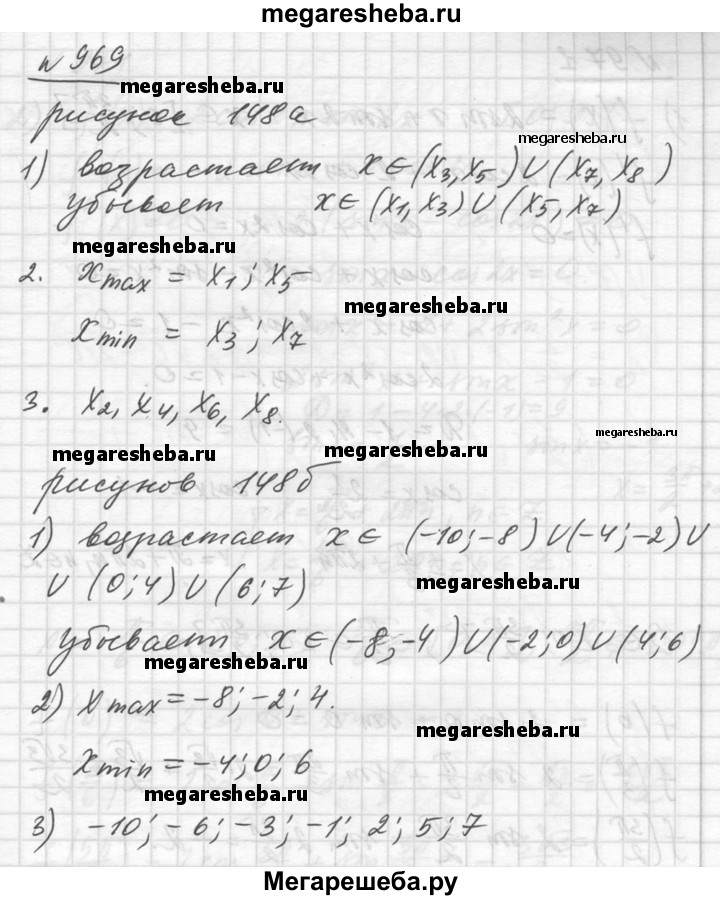 megaresheba.ru
n 969
megaresheba.ru
рисунок 148а
megaresheba.ru
1) возрастает x∈(x3, x5)∪(x7, x8)
убывает x∈(x1, x3)∪(x5, x7)
megaresheba.ru
2. xmax = x1; x5
megaresheba.ru
xmin = x3; x7
3. x2, x4, x6, x8.
megaresheba.ru
megaresheba.ru
рисунов 148б
1) возрастает x∈ (-10;-8)∪(-4;-2)∪
∪ (0;4)∪(6;7)
megaresheba.ru
убывает x∈(-8;-4)∪(-2;0)∪(4;6)
megaresheba.ru
2) xmax=-8;-2;4.
megaresheba.ru
xmin=-4;0;6
megaresheba.ru
3) -10;-6;-3;-1;2;5;7
Мегарешеба.ру